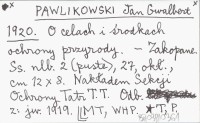 × PAWLIKOWSKI Jan Gwalbert ×
1920. O celach i środkach
ochrony przyrody. – Zakopane.
Ss. nlb. 2 (puste), 27, okł.,
cm 12 x 8. Nakładem Sekcji
Ochrony Tatr T.T. Odb.
z: jw. 1919. MT, WHP. * T.P.